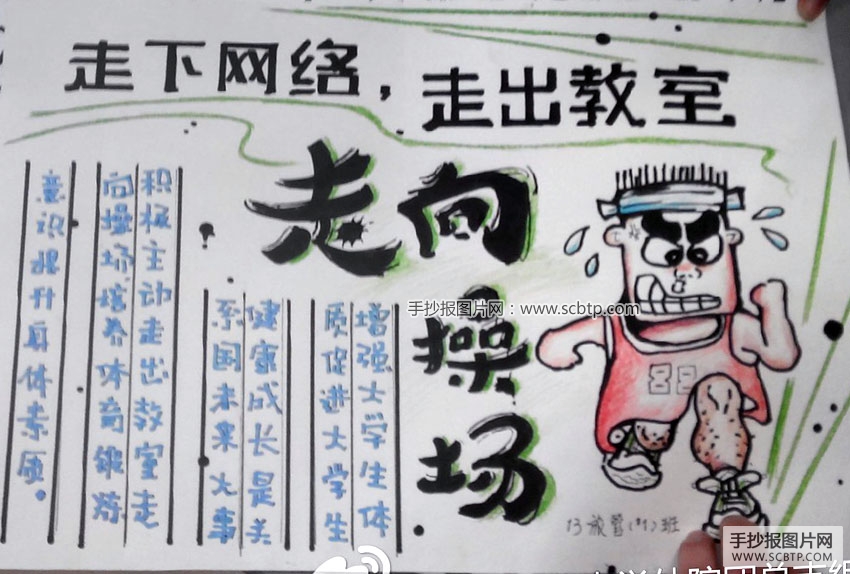 走下网络，走出教室
走向
操
场
增强大学生体
质促进大学生
健康成长是关
系国未来大事
积极主动走出教室走
向操场培养体育锻炼
意识提升身体素质。
88
13旅管(*1)班
手抄报图片网：www.scbtp.com
手抄报图片网
WWW.SCBTP.COM